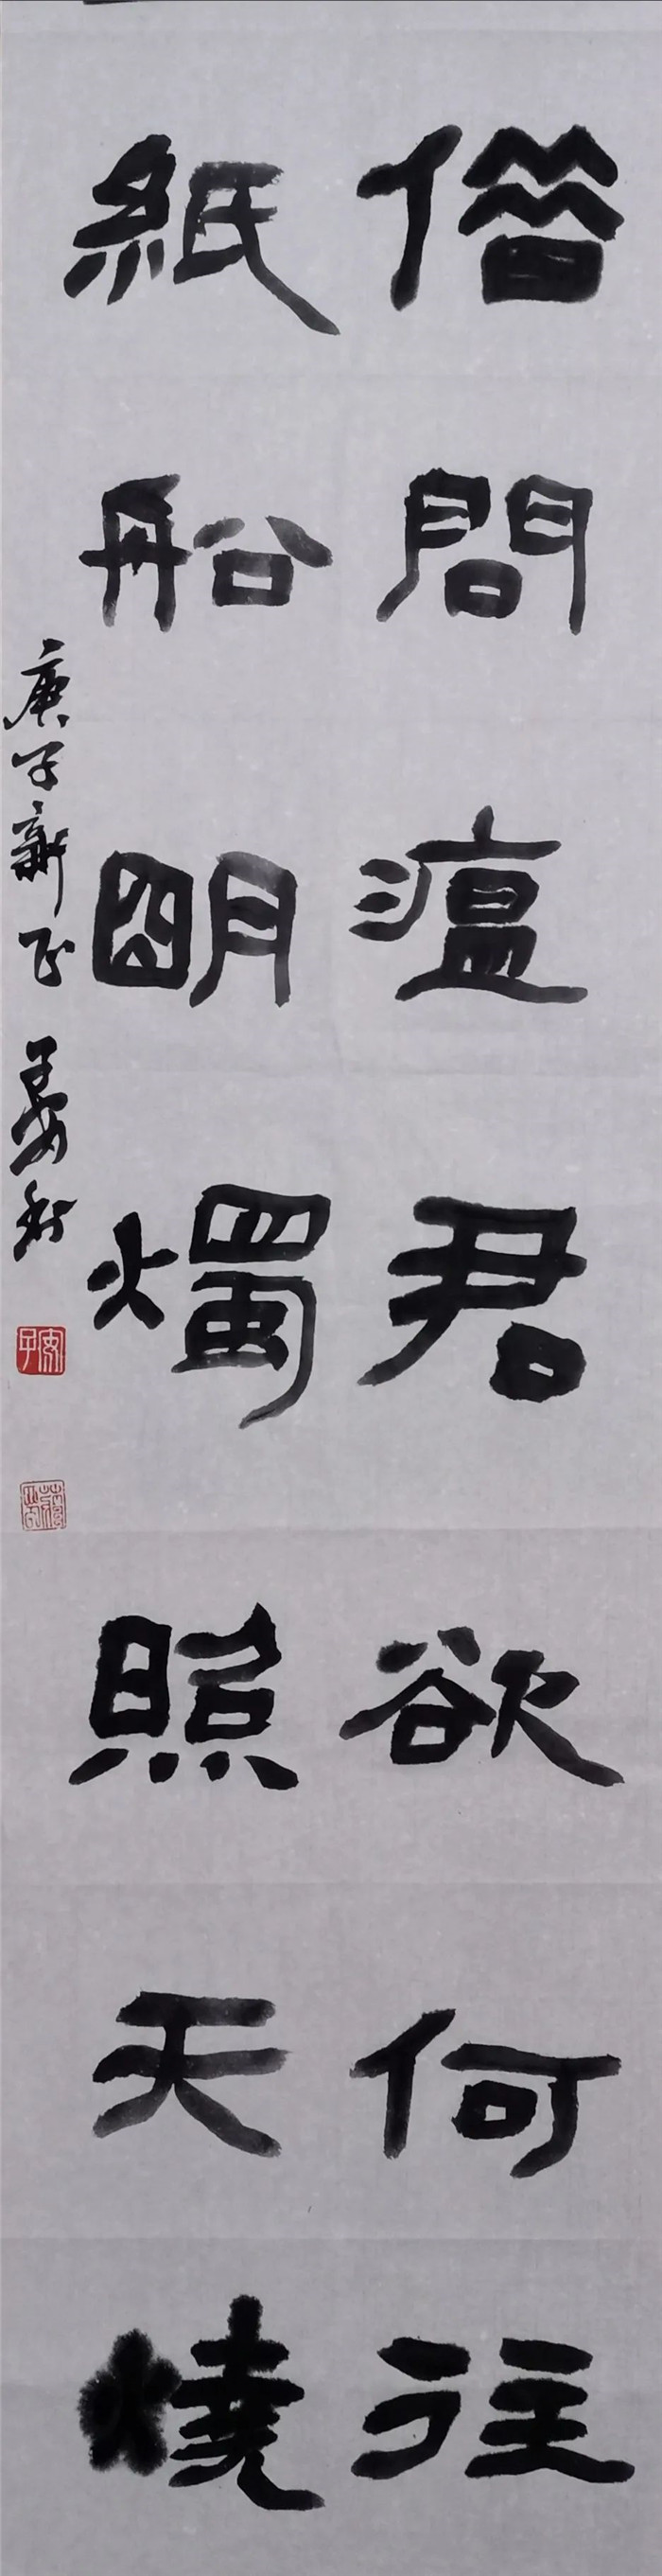 借問瘟君欲何往
紙船明燭照天燒
庚子新正